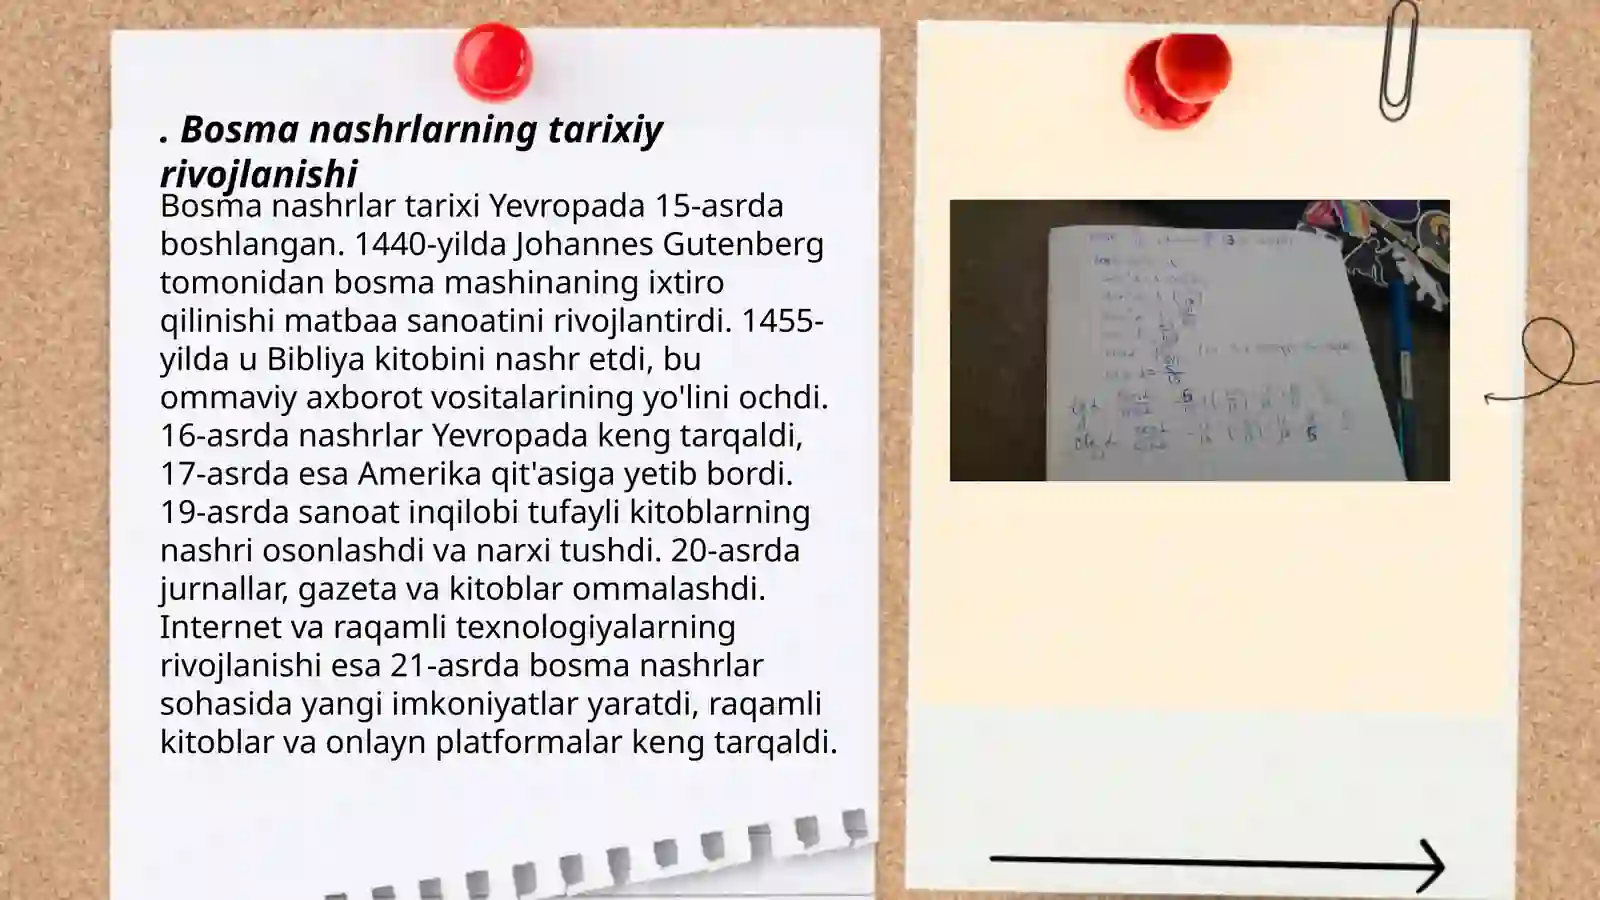 . Bosma nashrlarning tarixiy
rivojlanishi
Bosma nashrlar tarixi Yevropada 15-asrda
boshlangan. 1440-yilda Johannes Gutenberg
tomonidan bosma mashinaning ixtiro
qilinishi matbaa sanoatini rivojlantirdi. 1455-
yilda u Bibliya kitobini nashr etdi, bu
ommaviy axborot vositalarining yo'lini ochdi.
16-asrda nashrlar Yevropada keng tarqaldi,
17-asrda esa Amerika qit'asiga yetib bordi.
19-asrda sanoat inqilobi tufayli kitoblarning
nashri osonlashdi va narxi tushdi. 20-asrda
jurnallar, gazeta va kitoblar ommalashdi.
Internet va raqamli texnologiyalarning
rivojlanishi esa 21-asrda bosma nashrlar
sohasida yangi imkoniyatlar yaratdi, raqamli
kitoblar va onlayn platformalar keng tarqaldi.